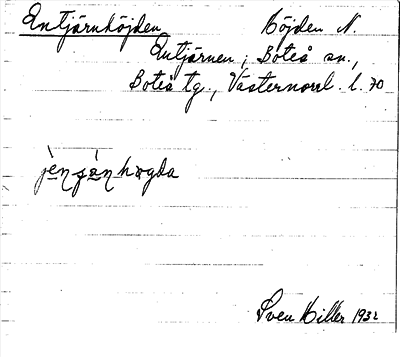 Entjärnhöjden Höjden N.
Entjärnen, Boteå sn.,
Boteå tg., Västernorrl. l. 70
jènʃànhøgda
Sven Hiller 1932